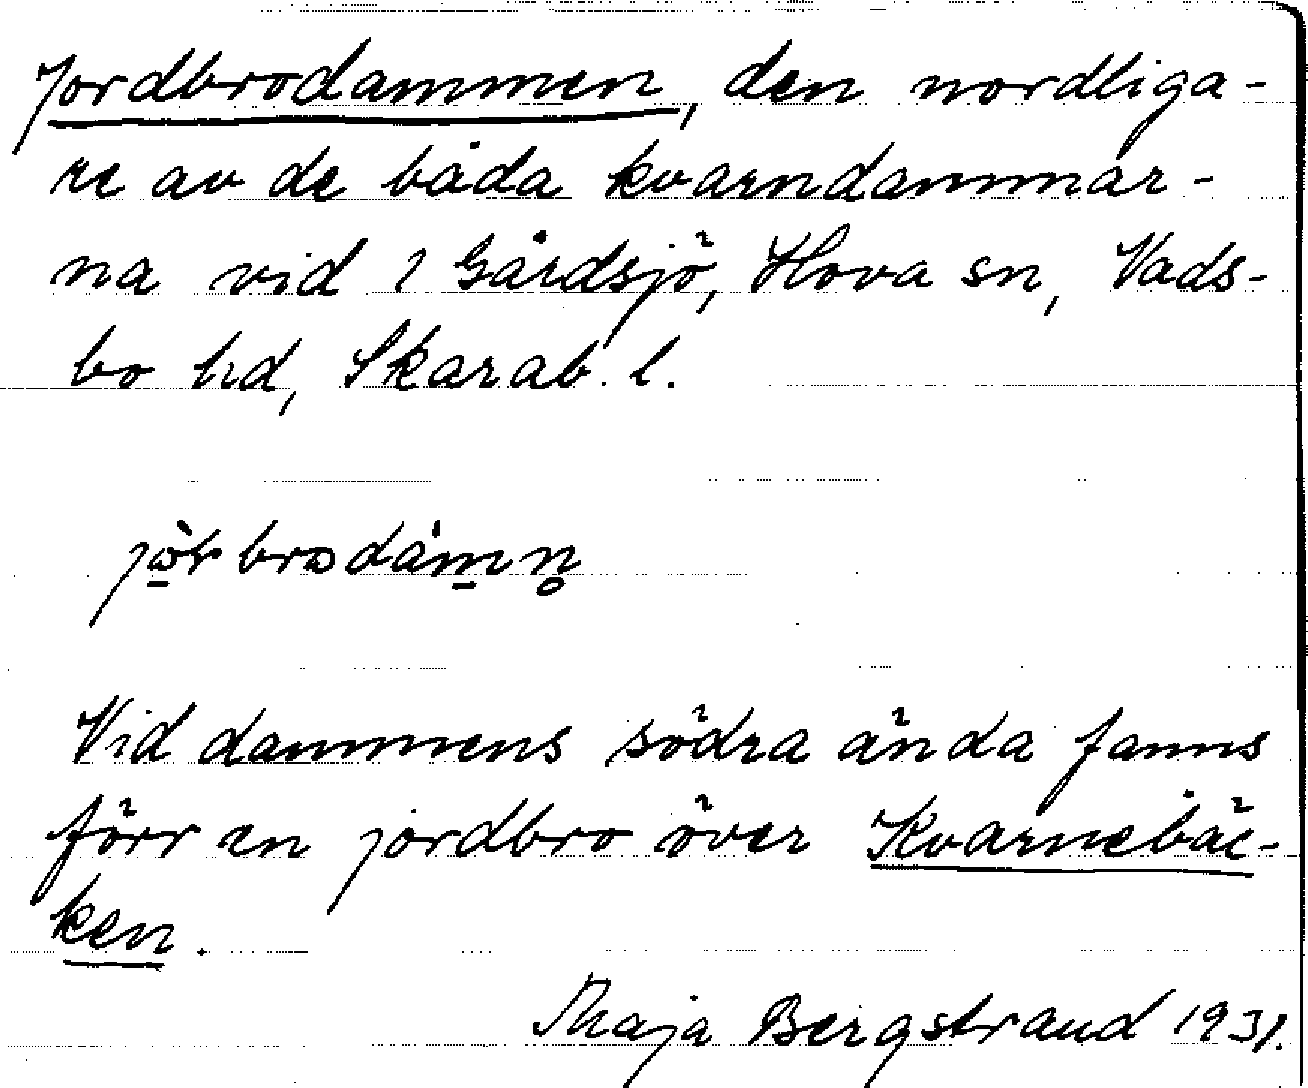 Jordbrodammen, den nordliga-
re av de båda kvarndammar-
na vid 1 Gårdsjö, Hova sn, Vads-
bo hd, Skarab. l.
jòrbrodámn̥
Vid dammens södra ända fanns
förr en jordbro över Kvarnebäc-
ken.
Maja Bergstrand 1931.